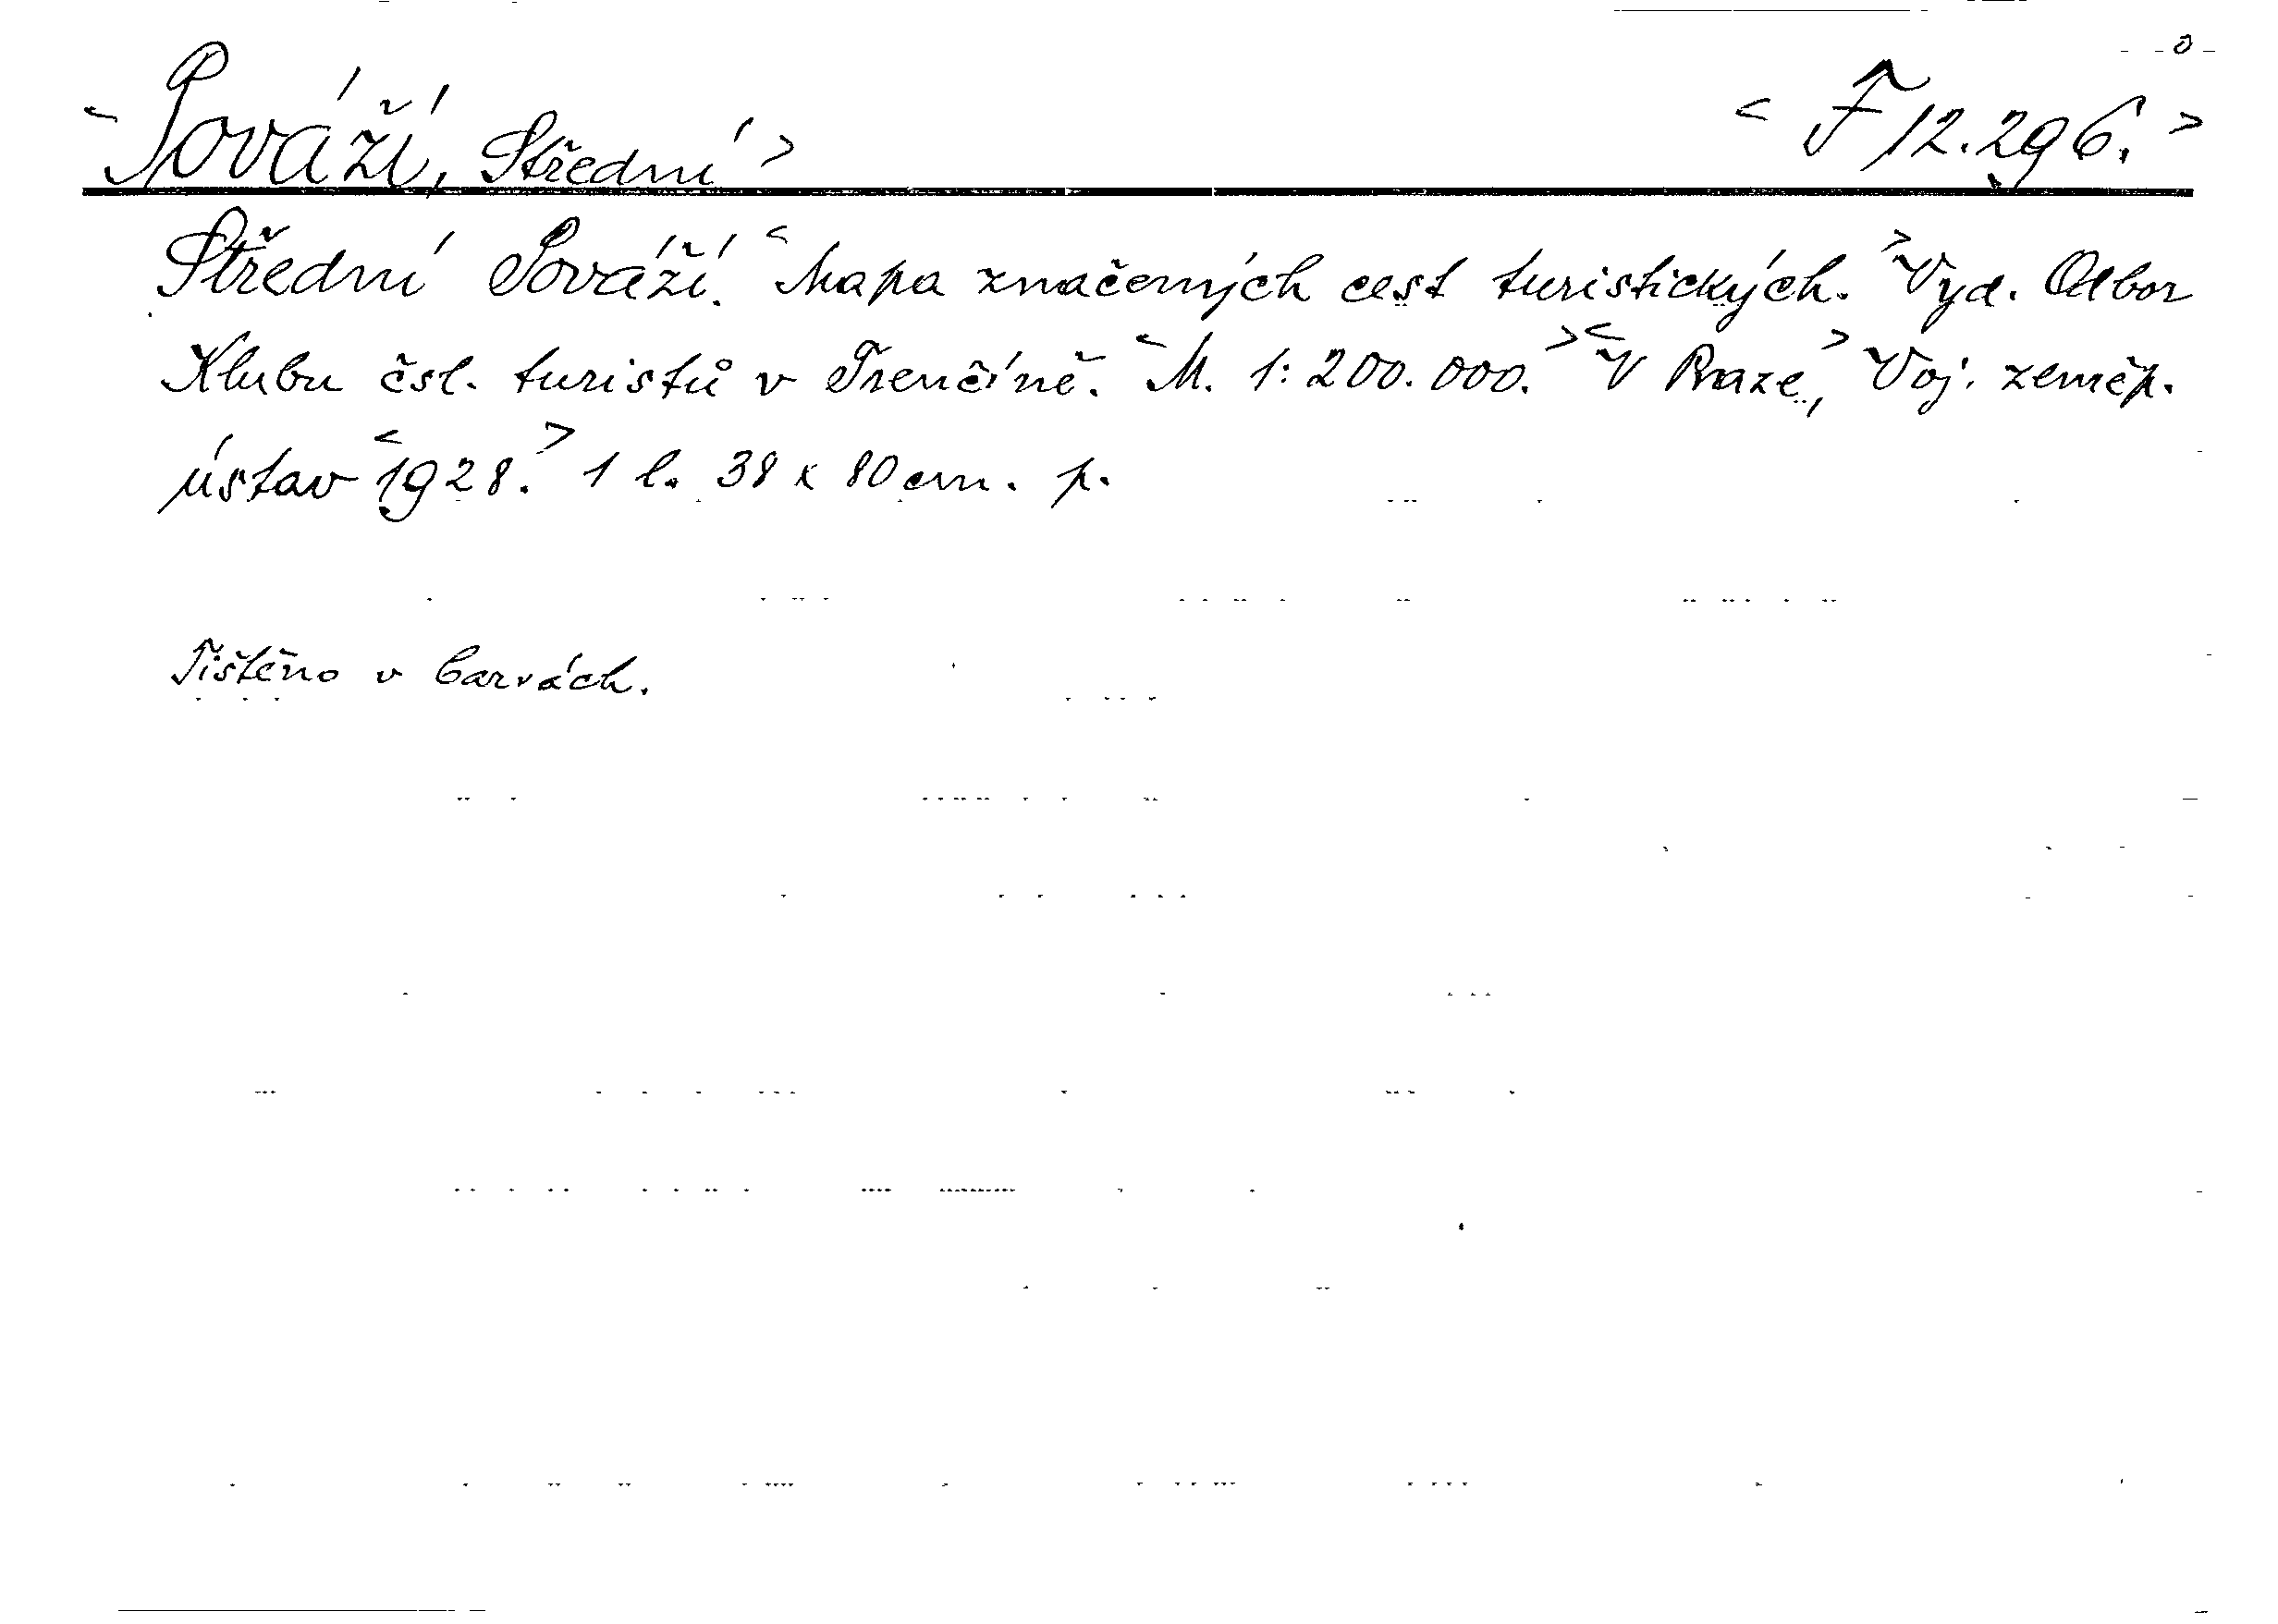 < Považí, Střední > < F 12.296. >
Střední Považí. < Mapa značených cest turistických. > Vyd. Odbor
Klubu čsl. turistů v Trenčíně. < M. 1:200.000. > < V Praze, > Voj. zeměp.
ústav < 1928. > 1 l. 38 x 80 cm. p.
Tištěno v barvách.